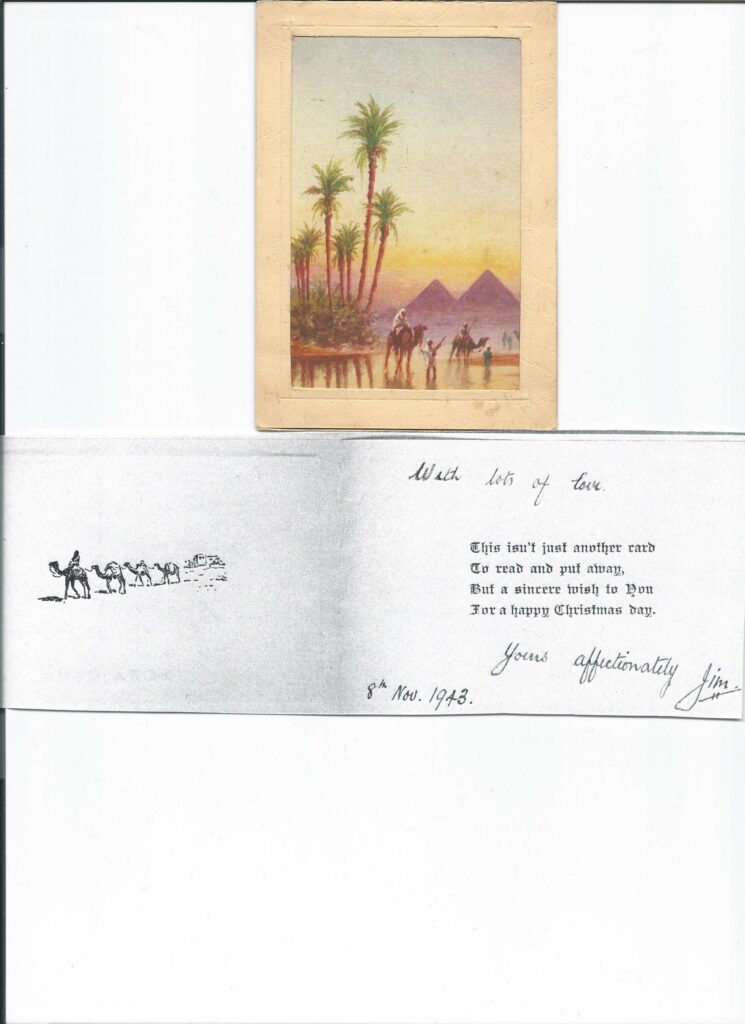 With lots of love.
This isn't just another card
To read and put away,
But a sincere wish to You
For a happy Christmas day.
Yours affectionately Jim.
8th Nov. 1943.